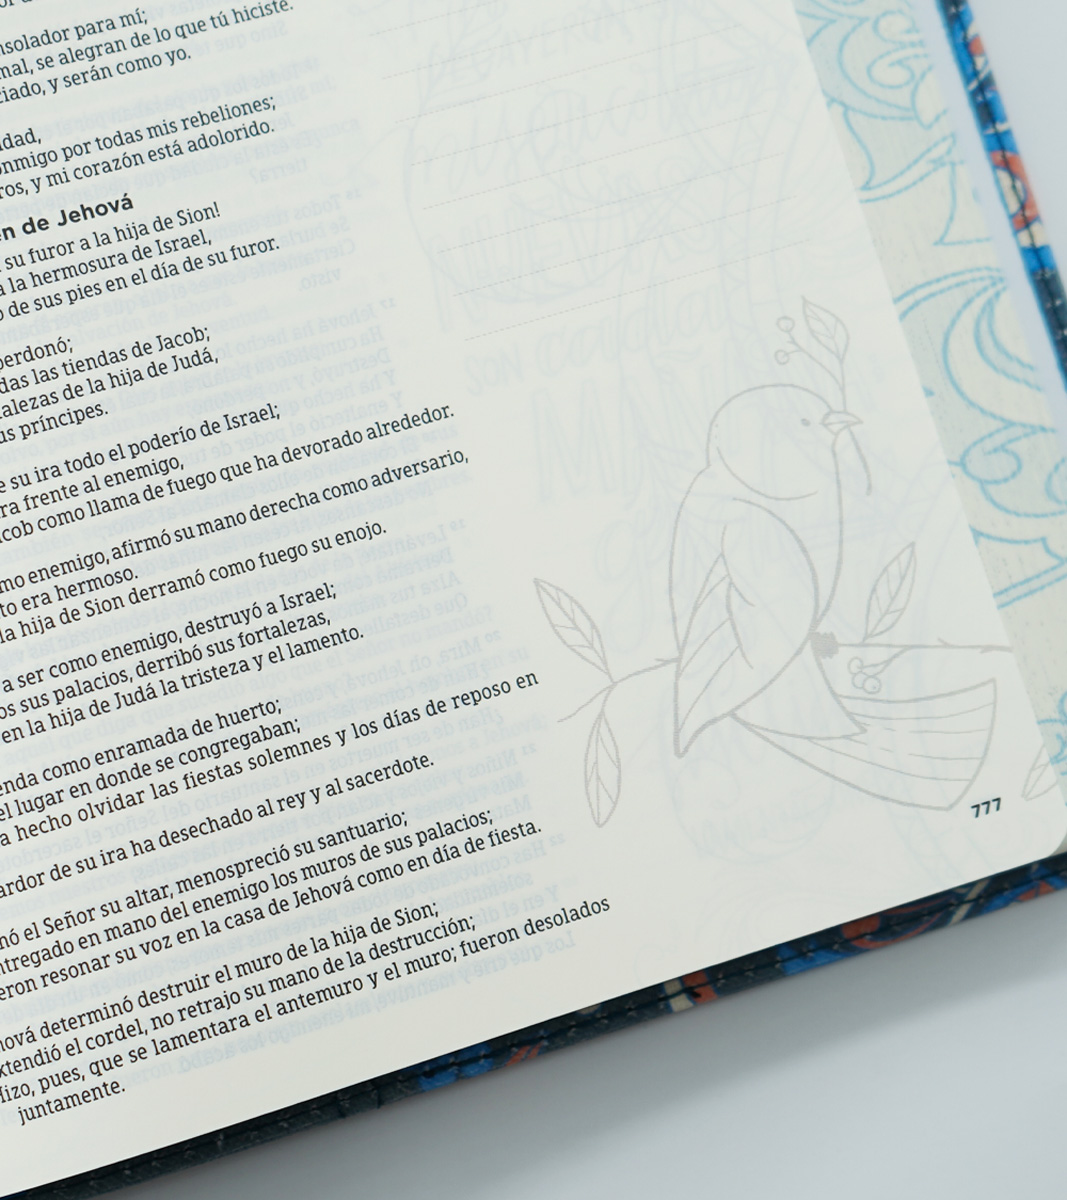 nsolador para mí;
mal, se alegran de lo que tú hiciste.
ciado, y serán como yo.
idad,
onmigo por todas mis rebeliones;
ros, y mi corazón está adolorido.
n de Jehová
su furor a la hija de Sion!
a la hermosura de Israel,
o de sus pies en el día de su furor.
perdonó;
das las tiendas de Jacob;
alezas de la hija de Judá,
us príncipes.
e su ira todo el poderío de Israel;
ra frente al enemigo,
acob como llama de fuego que ha devorado alrededor.
mo enemigo, afirmó su mano derecha como adversario,
to era hermoso.
la hija de Sion derramó como fuego su enojo.
a ser como enemigo, destruyó a Israel;
os sus palacios, derribó sus fortalezas,
en la hija de Judá la tristeza y el lamento.
enda como enramada de huerto;
el lugar en donde se congregaban;
a hecho olvidar las fiestas solemnes y los días de reposo en
ardor de su ira ha desechado al rey y al sacerdote.
nó el Señor su altar, menospreció su santuario;
ntregado en mano del enemigo los muros de sus palacios;
eron resonar su voz en la casa de Jehová como en día de fiesta.
hová determinó destruir el muro de la hija de Sion;
xtendió el cordel, no retrajo su mano de la destrucción;
Hizo, pues, que se lamentara el antemuro y el muro; fueron desolados
juntamente.
777